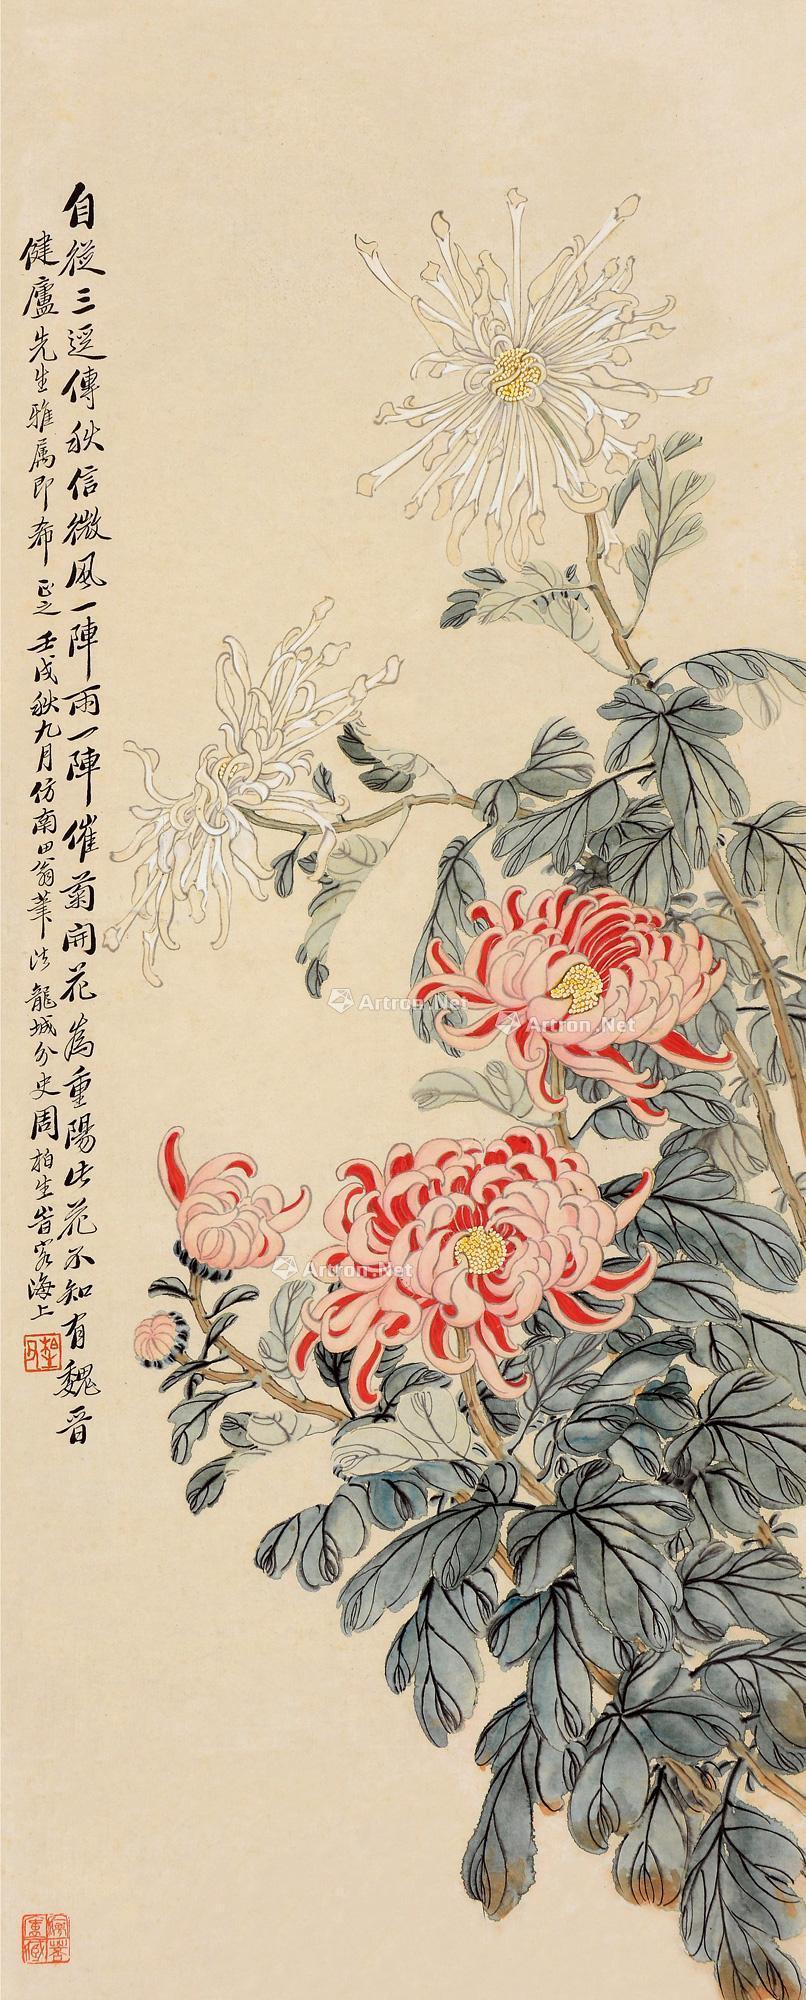 自從三逕傳秋信微風一陣雨一陣催菊開花為重陽此花不知有魏晉
健廬先生雅属即希正之壬戌秋九月仿南田翁筆法龍城分史周柏生峕客海上
Artron.Net
Artron.Net
Artron.Net